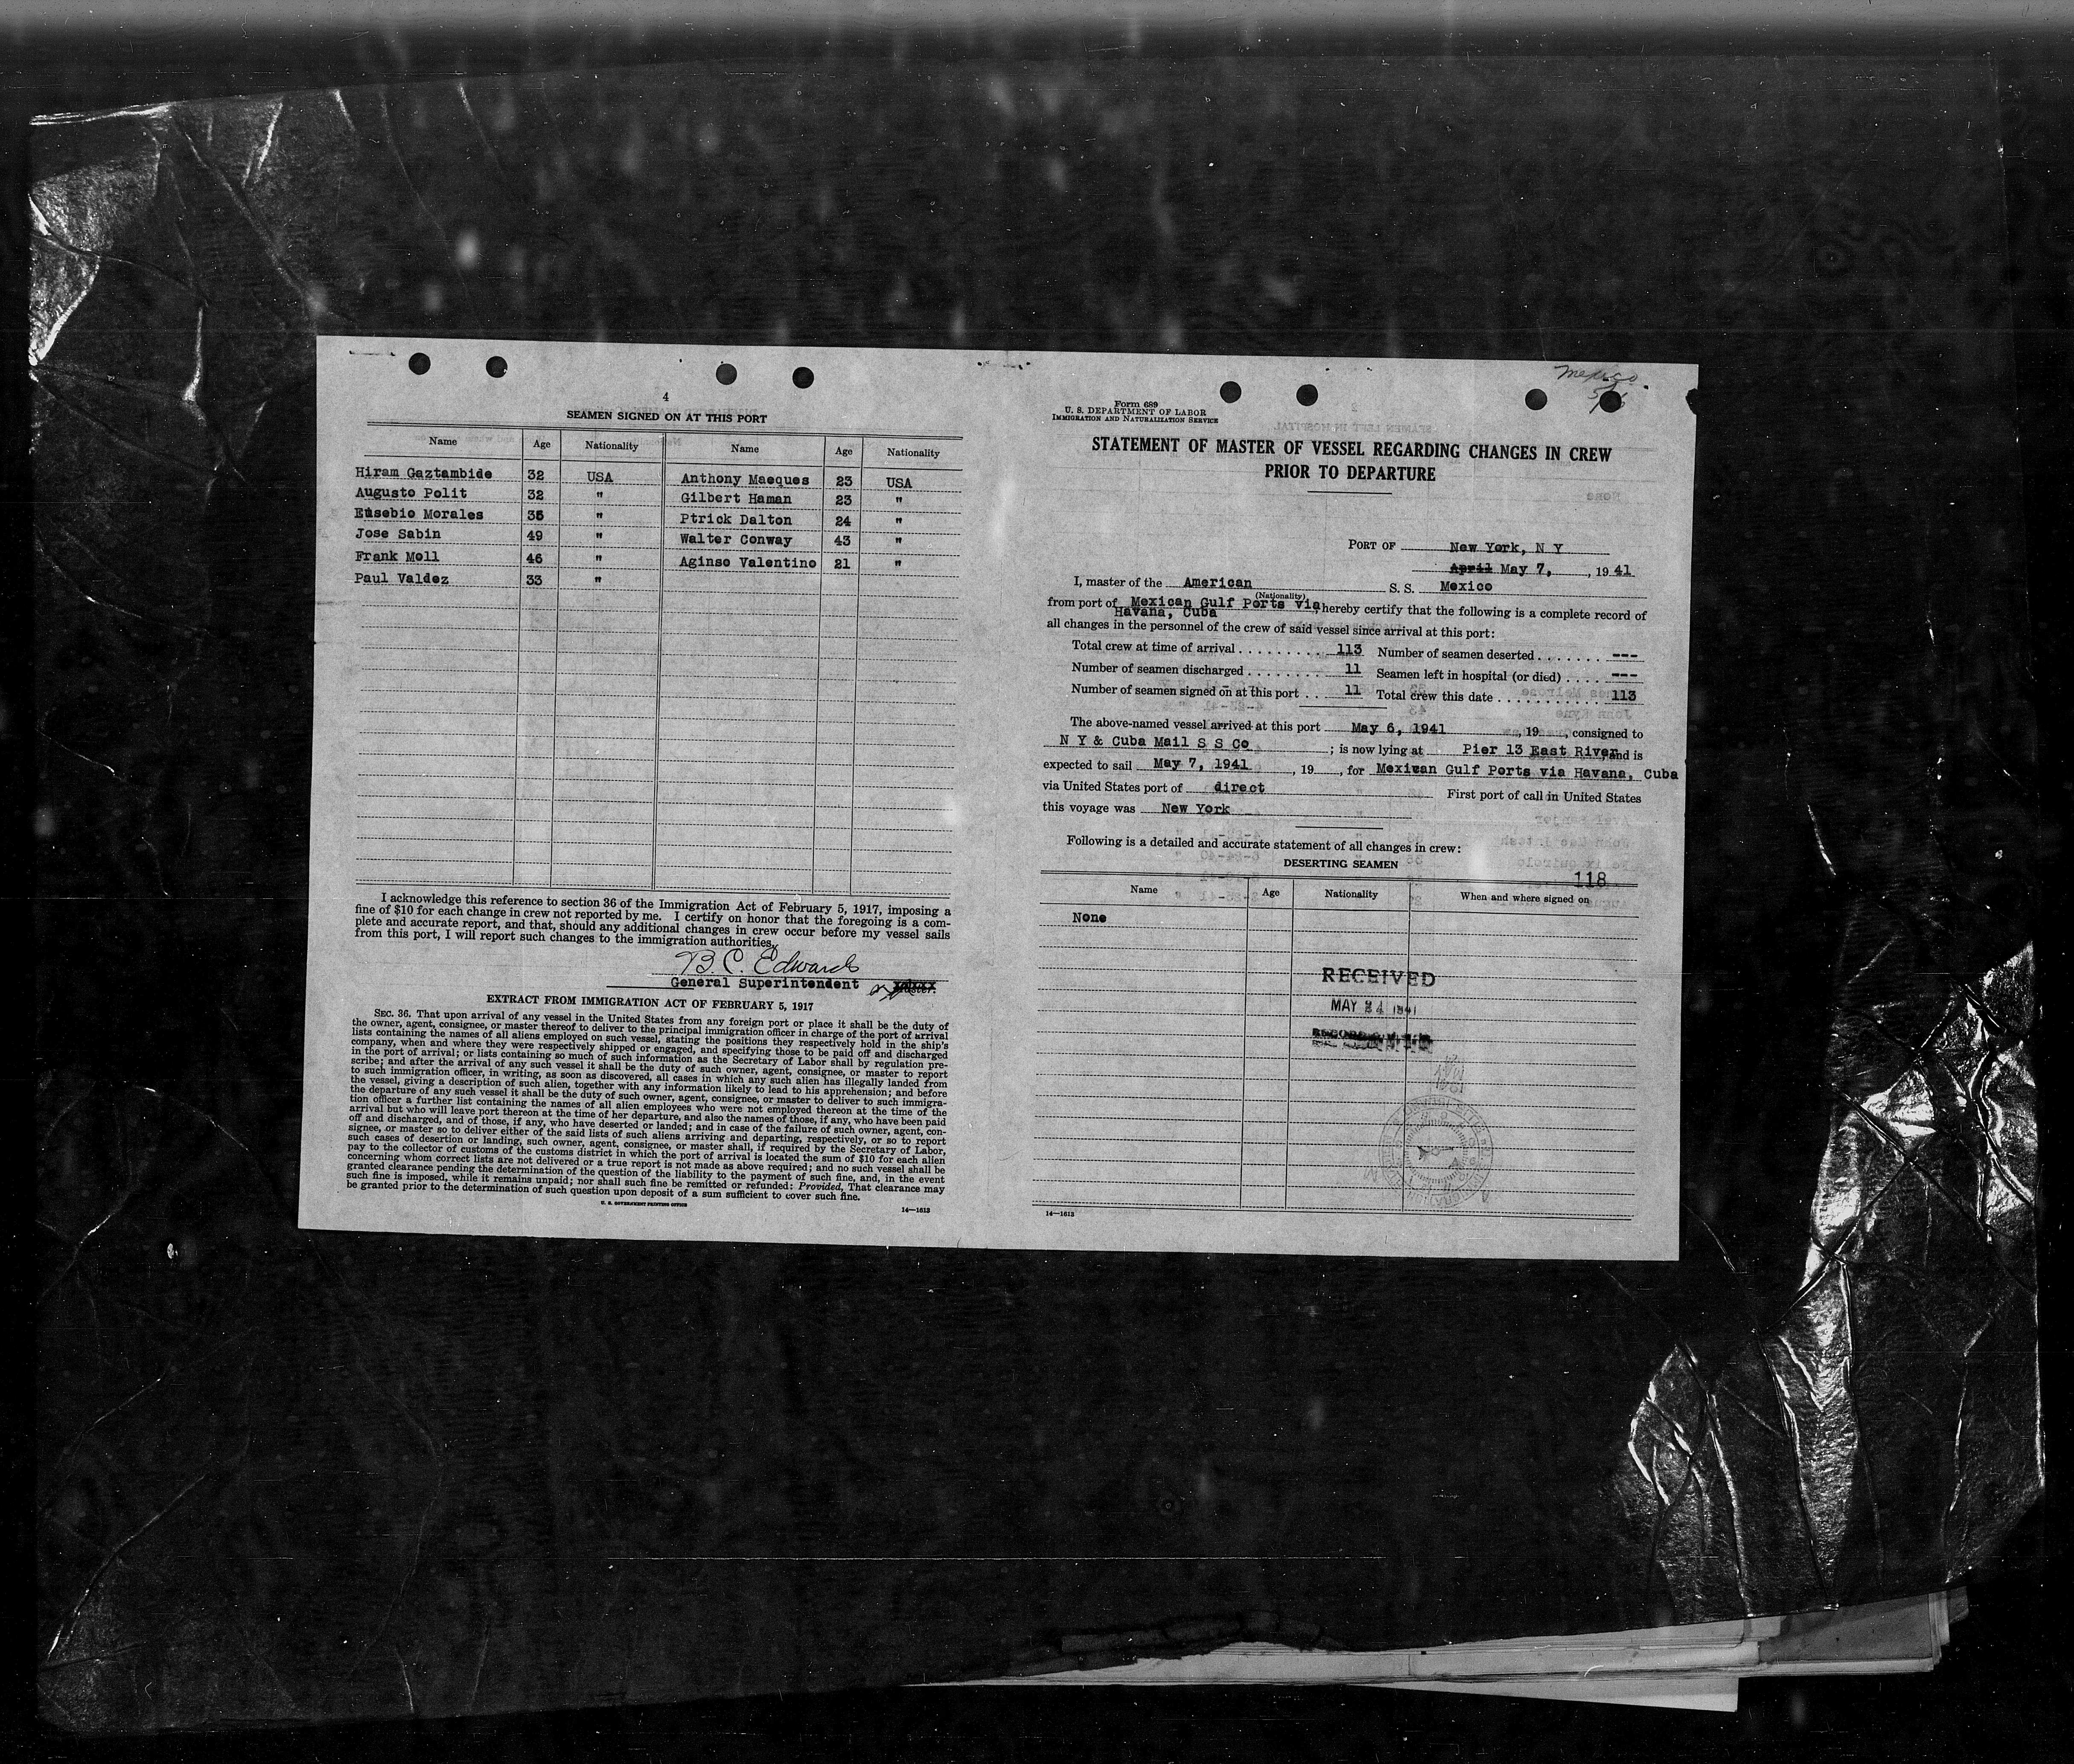 4
SEAMEN SIGNED ON AT THIS PORT
Name Age Nationality Name Age Nationality
Hiram Gaztambide 32 USA Anthony Maeques 23 USA
Augusto Polit 32 " Gilbert Haman 23 "
Eusebio Morales 35 " Ptrick Dalton 24 "
Jose Sabin 49 " Walter Conway 43 "
Frank Moll 46 " Aginso Valentino 21 "
Paul Valdez 33 "
I acknowledge this reference to section 36 of the Immigration Act of February 5, 1917, imposing a
fine of $10 for each change in crew not reported by me. I certify on honor that the foregoing is a com-
plete and accurate report, and that, should any additional changes in crew occur before my vessel sails
from this port, I will report such changes to the immigration authorities.
B. C. Edwards
General Superintendent
EXTRACT FROM IMMIGRATION ACT OF FEBRUARY 5, 1917
SEC. 36. That upon arrival of any vessel in the United States from any foreign port or place it shall be the duty of
the owner, agent, consignee, or master thereof to deliver to the principal immigration officer in charge of the port of arrival
lists containing the names of all aliens employed on such vessel, stating the positions they respectively hold in the ship's
company, when and where they were respectively shipped or engaged, and specifying those to be paid off and discharged
in the port of arrival; or lists containing so much of such information as the Secretary of Labor shall by regulation pre-
scribe; and after the arrival of any such vessel it shall be the duty of such owner, agent, consignee, or master to report
to such immigration officer, in writing, as soon as discovered, all cases in which any such alien has illegally landed from
the vessel, giving a description of such alien, together with any information likely to lead to his apprehension; and before
the departure of any such vessel it shall be the duty of such owner, agent, consignee, or master to deliver to such immigra-
tion officer a further list containing the names of all alien employees who were not employed thereon at the time of the
arrival but who will leave port thereon at the time of her departure, and also the names of those, if any, who have been paid
off and discharged, and of those, if any, who have deserted or landed; and in case of the failure of such owner, agent, con-
signee, or master so to deliver either of the said lists of such aliens arriving and departing, respectively, or so to report
such cases of desertion or landing, such owner, agent, consignee, or master shall, if required by the Secretary of Labor,
pay to the collector of customs of the customs district in which the port of arrival is located the sum of $10 for each alien
concerning whom correct lists are not delivered or a true report is not made as above required; and no such vessel shall be
granted clearance pending the determination of the question of the liability to the payment of such fine, and, in the event
such fine is imposed, while it remains unpaid; nor shall such fine be remitted or refunded: Provided, That clearance may
be granted prior to the determination of such question upon deposit of a sum sufficient to cover such fine.
U. S. GOVERNMENT PRINTING OFFICE
14—1613
Mexico
5/6
Form 689
U. S. DEPARTMENT OF LABOR
IMMIGRATION AND NATURALIZATION SERVICE
STATEMENT OF MASTER OF VESSEL REGARDING CHANGES IN CREW
PRIOR TO DEPARTURE
PORT OF New York, N Y
April May 7, , 19 41
I, master of the American S. S. Mexico
(Nationality)
from port of Mexican Gulf Ports via hereby certify that the following is a complete record of
Havana, Cuba
all changes in the personnel of the crew of said vessel since arrival at this port:
Total crew at time of arrival . . . . . . . . . 113 Number of seamen deserted . . . . . . . ---
Number of seamen discharged . . . . . . . . 11 Seamen left in hospital (or died) . . . . ---
Number of seamen signed on at this port . . 11 Total crew this date . . . . . . . . . . . 113
The above-named vessel arrived at this port May 6, 1941 , 19 , consigned to
N Y & Cuba Mail S S Co ; is now lying at Pier 13 East River and is
expected to sail May 7, 1941 , 19 , for Mexican Gulf Ports via Havana, Cuba
via United States port of direct First port of call in United States
this voyage was New York
Following is a detailed and accurate statement of all changes in crew:
DESERTING SEAMEN
118
Name Age Nationality When and where signed on
None
RECEIVED
MAY 24 1941
14—1613